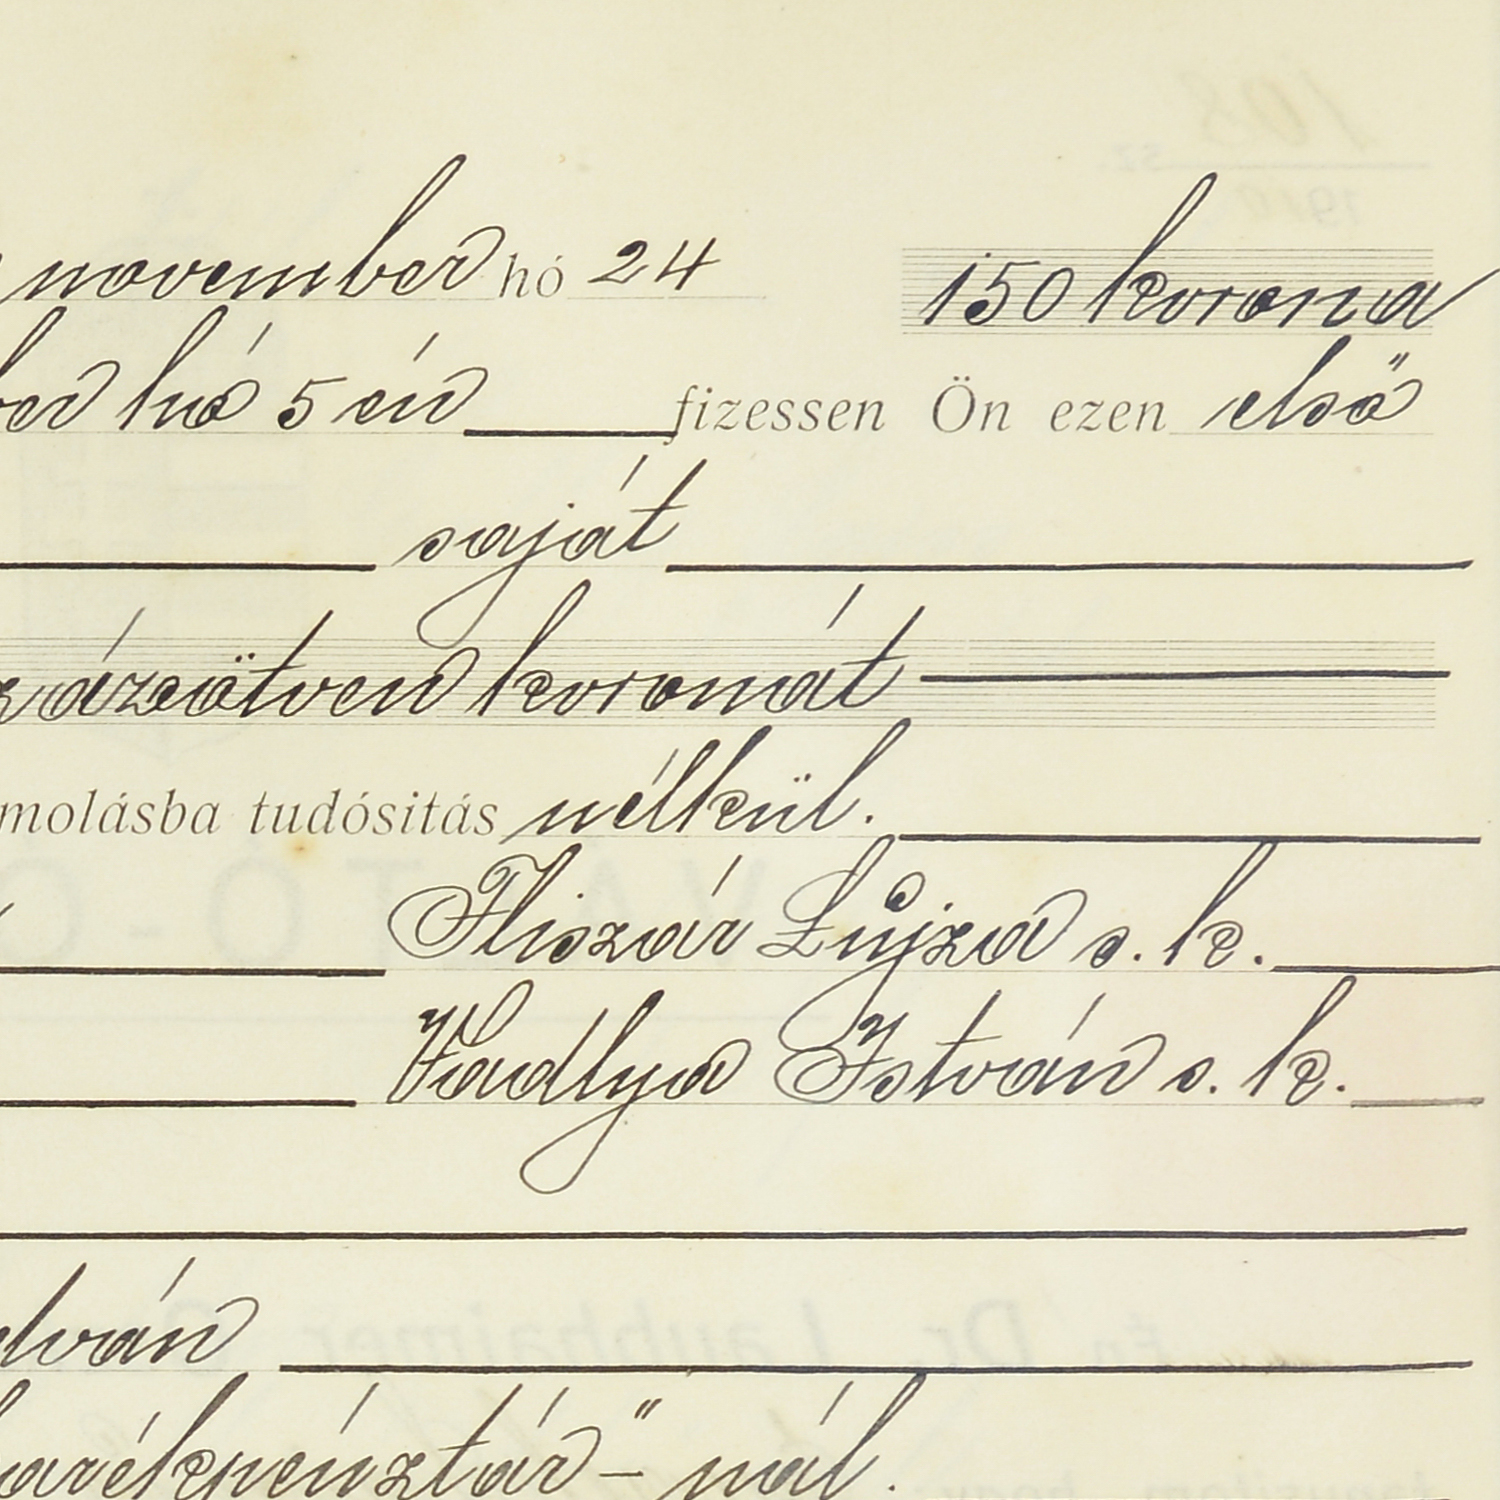 november hó 24 150 korona
ber hó 5 én fizessen Ön ezen első
saját
százötven koronát
molásba tudósitás nélkül.
Fliszár Lujza s. k.
Vadlya István s. k.
István
takarékpénztár"-nál.